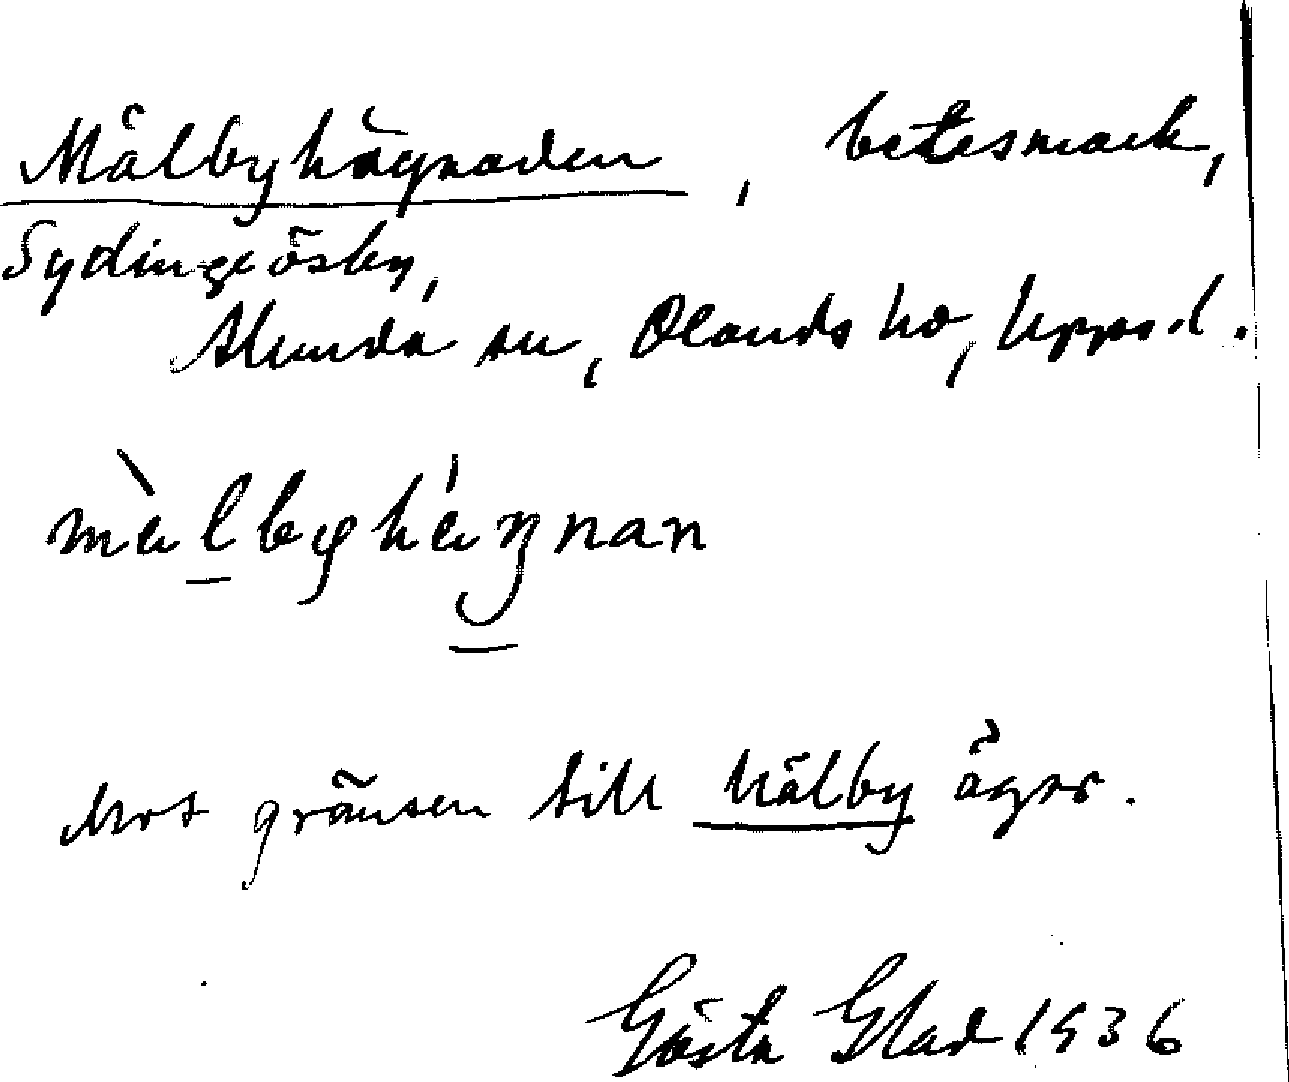 Mälbyhägnaden, betesmark,
Sydingeösby,
Alunda sn, Olands hd, Uppsal.
mɛ̀lbyhɛ́ŋnan
Mot gränsen till Mälby ägor.
Gösta Glad 1936